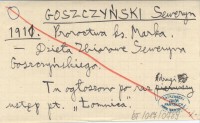 GOSZCZYŃSKI Seweryn
1910. Proroctwa ks. Marka.
— Dzieła Zbiorowe Seweryna
Goszczyńskiego.
Tu ogłoszono po raz drugi pierwszy
ustęp pt. „Łomnica”.